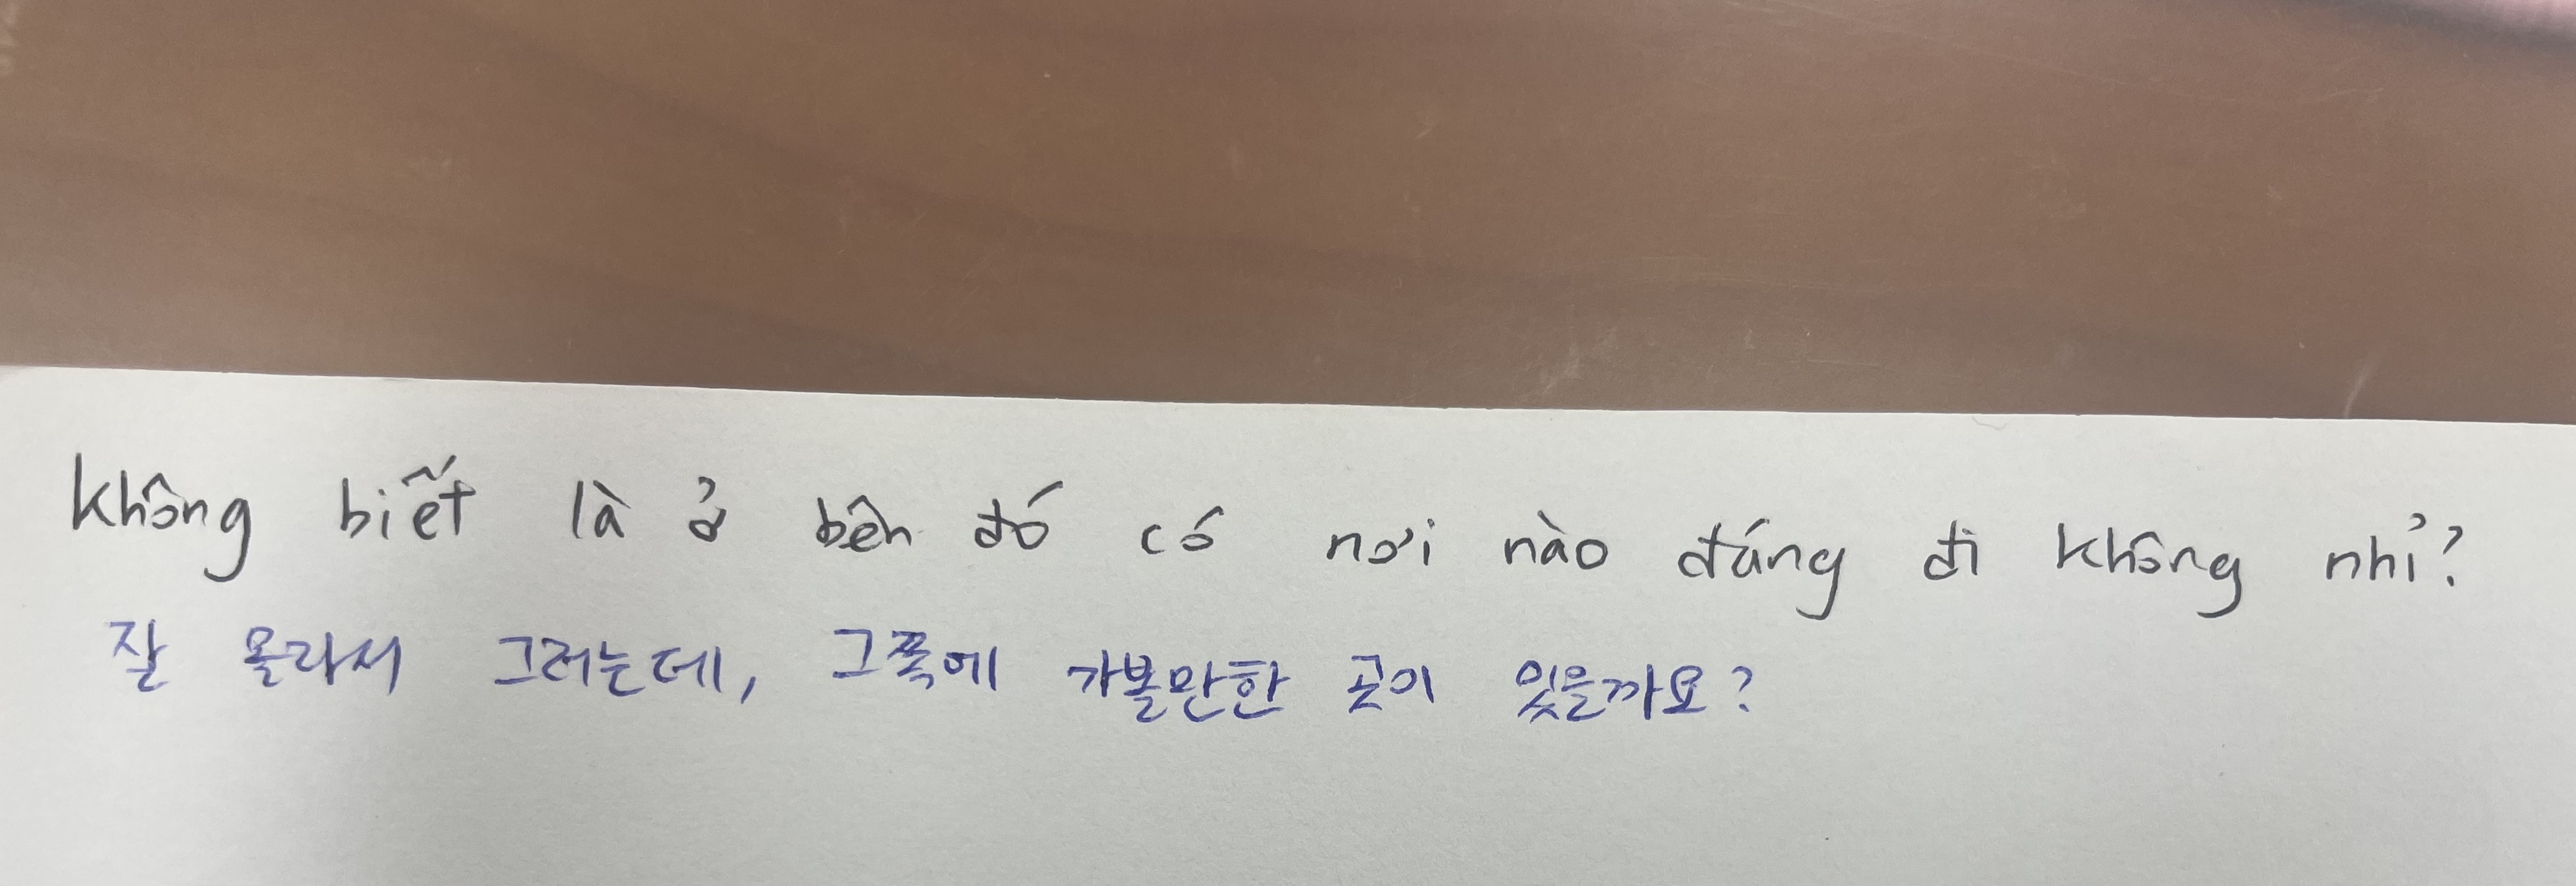 không biết là ở bên đó có nơi nào đáng đi không nhỉ?
잘 몰라서 그러는데, 그쪽에 가볼만한 곳이 있을까요?